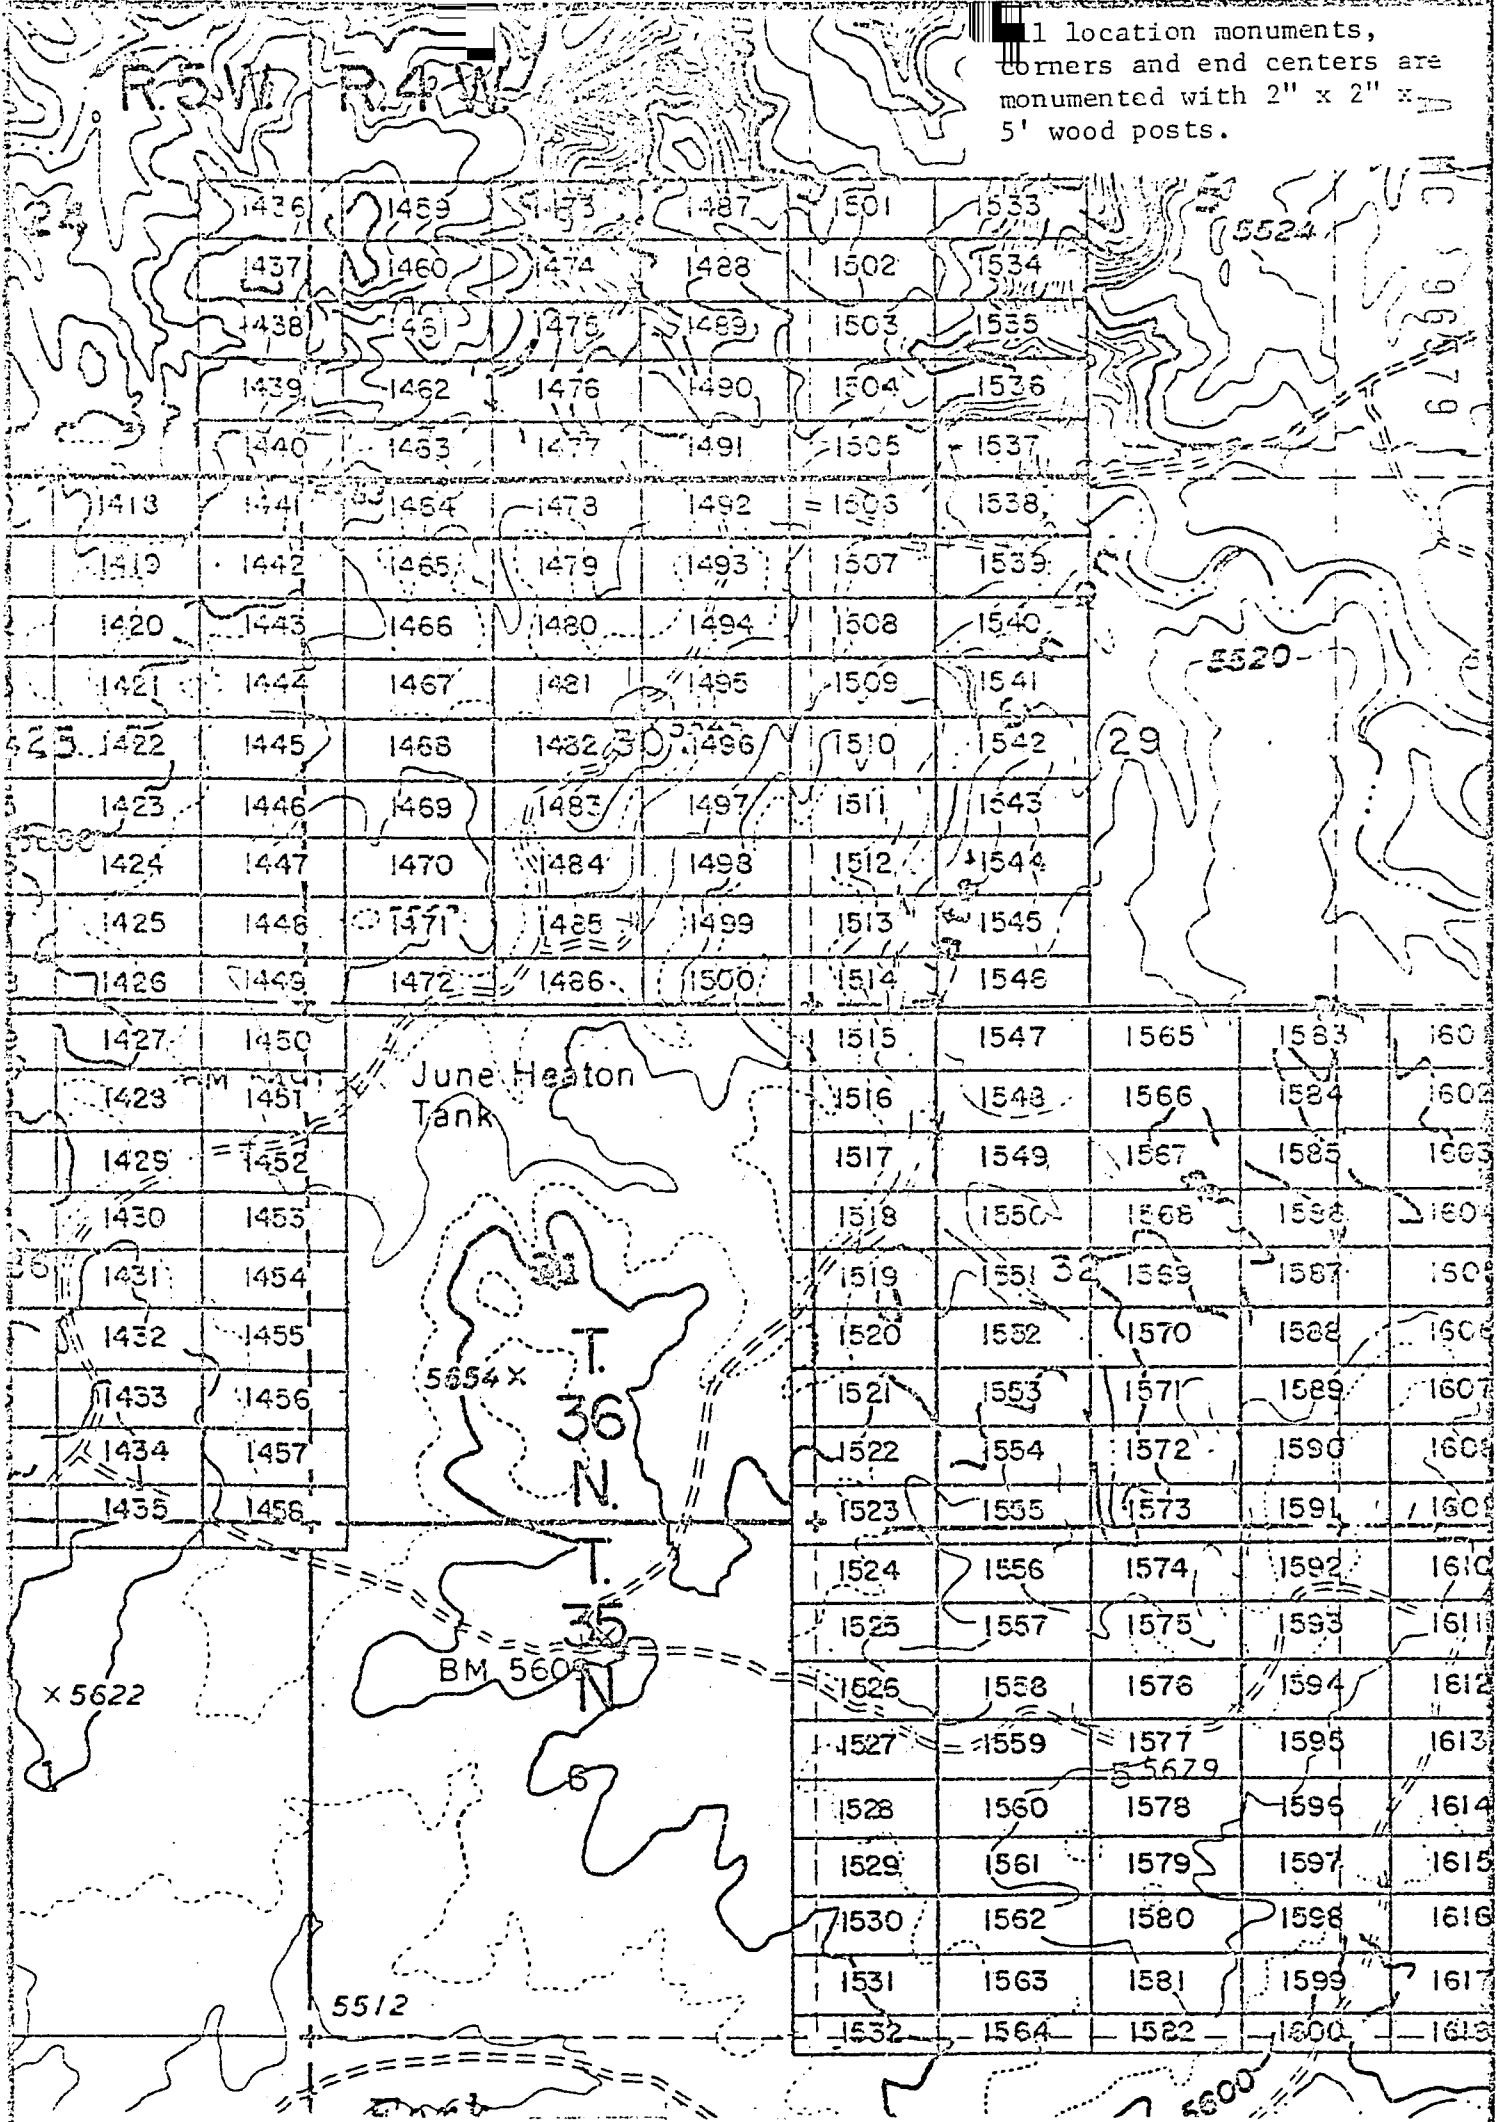 ll location monuments,
corners and end centers are
monumented with 2" x 2" x
5' wood posts.
R.5W. R.4W.
1436 1459 1473 1487 1501 1533
5524
1437 1460 1474 1488 1502 1534
1438 1461 1475 1489 1503 1535
1439 1462 1476 1490 1504 1536
1440 1463 1477 1491 1505 1537
1418 1441 1464 1478 1492 1506 1538
1419 1442 1465 1479 1493 1507 1539
1420 1443 1466 1480 1494 1508 1540
5520
1421 1444 1467 1481 1495 1509 1541
1422 1445 1468 1482 30 1496 1510 1542 29
1423 1446 1469 1483 1497 1511 1543
1424 1447 1470 1484 1498 1512 1544
1425 1448 1471 1485 1499 1513 1545
1426 1449 1472 1486 1500 1514 1546
1427 1450 1515 1547 1565 1583 160
June Heaton
Tank
1428 1451 1516 1548 1566 1584 1602
1429 1452 1517 1549 1567 1585 1603
1430 1453 1518 1550 1568 1586 160
1431 1454 1519 1551 32 1569 1587 160
1432 1455 1520 1552 1570 1588 1606
T.
36
N.
5654 ×
1433 1456 1521 1553 1571 1589 1607
1434 1457 1522 1554 1572 1590 1608
1435 1458 1523 1555 1573 1591 1609
T.
35
N
1524 1556 1574 1592 1610
1525 1557 1575 1593 1611
BM 560
× 5622
1526 1558 1576 1594 1612
1527 1559 1577 1595 1613
1
6
5 5679
1528 1560 1578 1596 1614
1529 1561 1579 1597 1615
1530 1562 1580 1598 1616
1531 1563 1581 1599 1617
5512
1532 1564 1582 1600 1618
5600